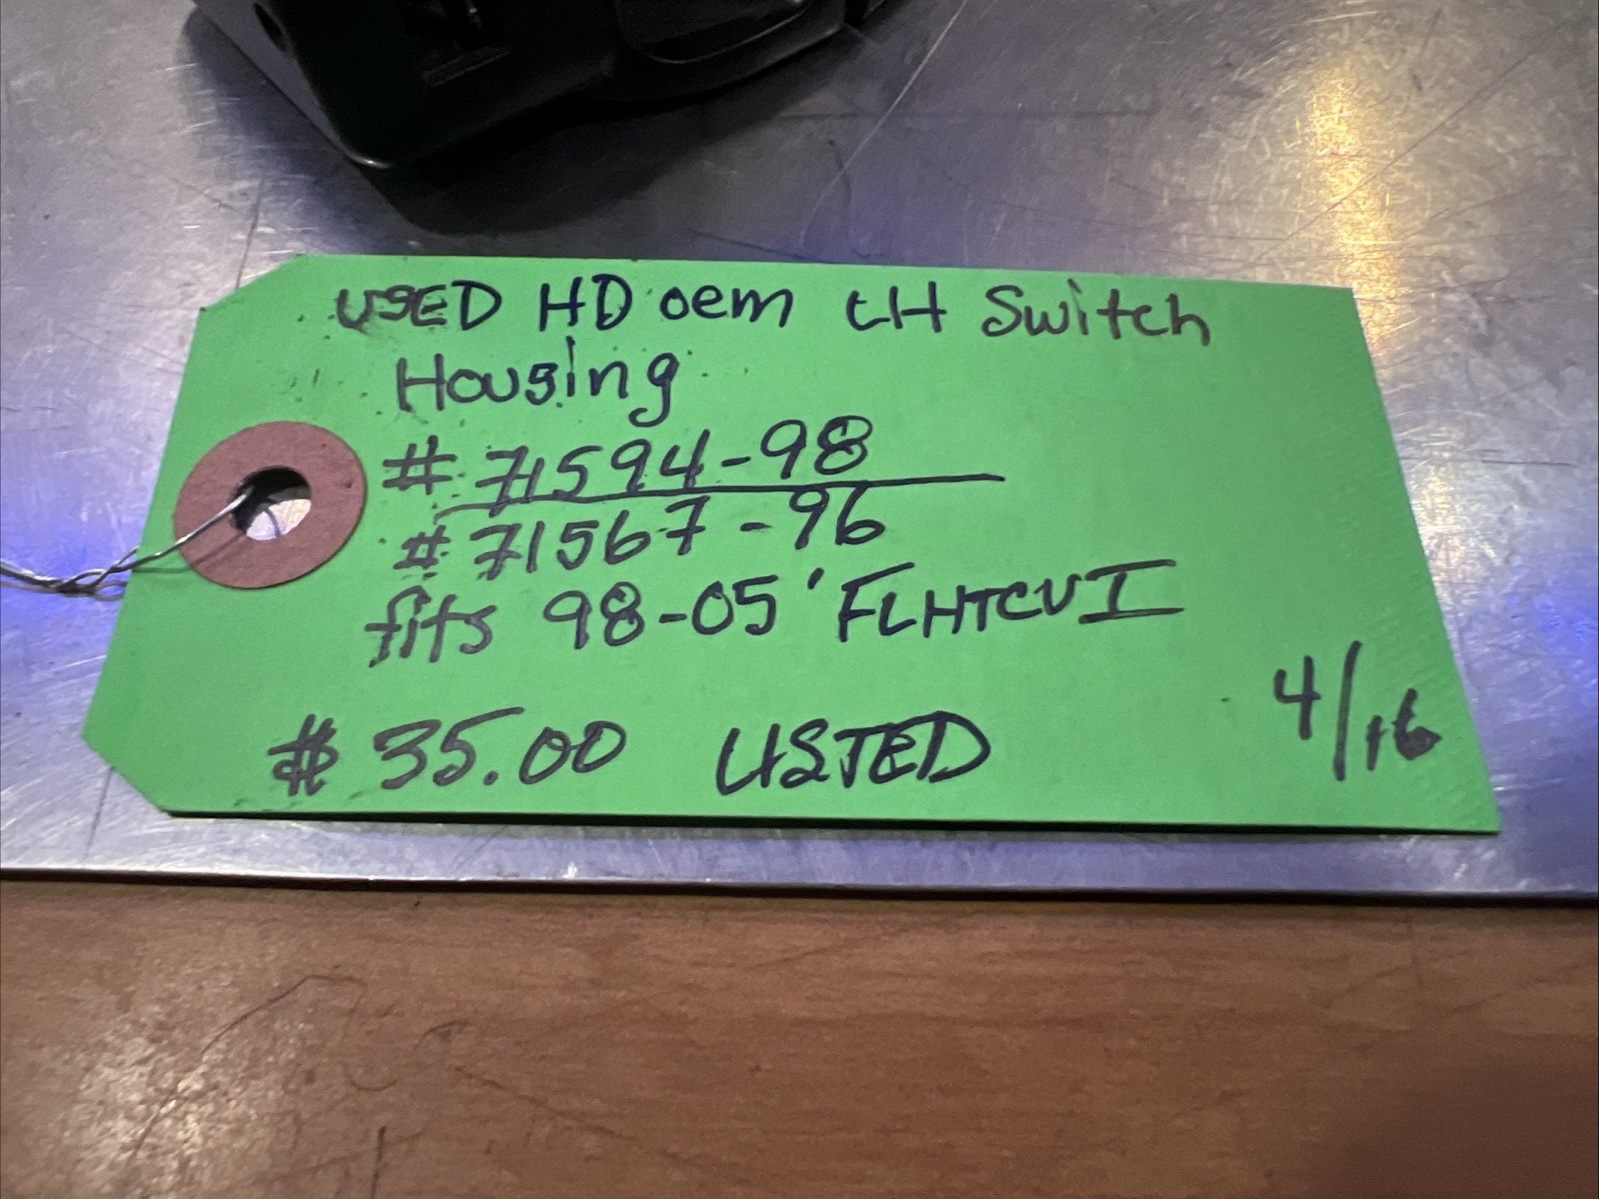 USED HD oem LH Switch
Housing
# 71594-98
# 71567-96
fits 98-05' FLHTCUI
$ 35.00 LISTED
4/16